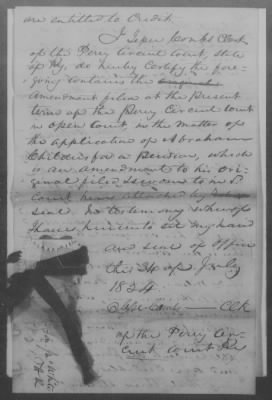 are entitled to Credit.
I Jesse Combs Clerk
of the Perry Circuit Court, state
of Ky, do hereby Certify the fore-
going contains the original
amendment filed at the present
term of the Perry Circuit Court
in open Court in the matter of
the application of Abraham
Childers for a Pension, which
is an amendment to his ori-
ginal filed
seal. In testimony whereof
I have hereunto set my hand
and seal of office
this 24 of July
1834
Jesse Combs Clk
of the Perry Cir-
cuit Court Ky